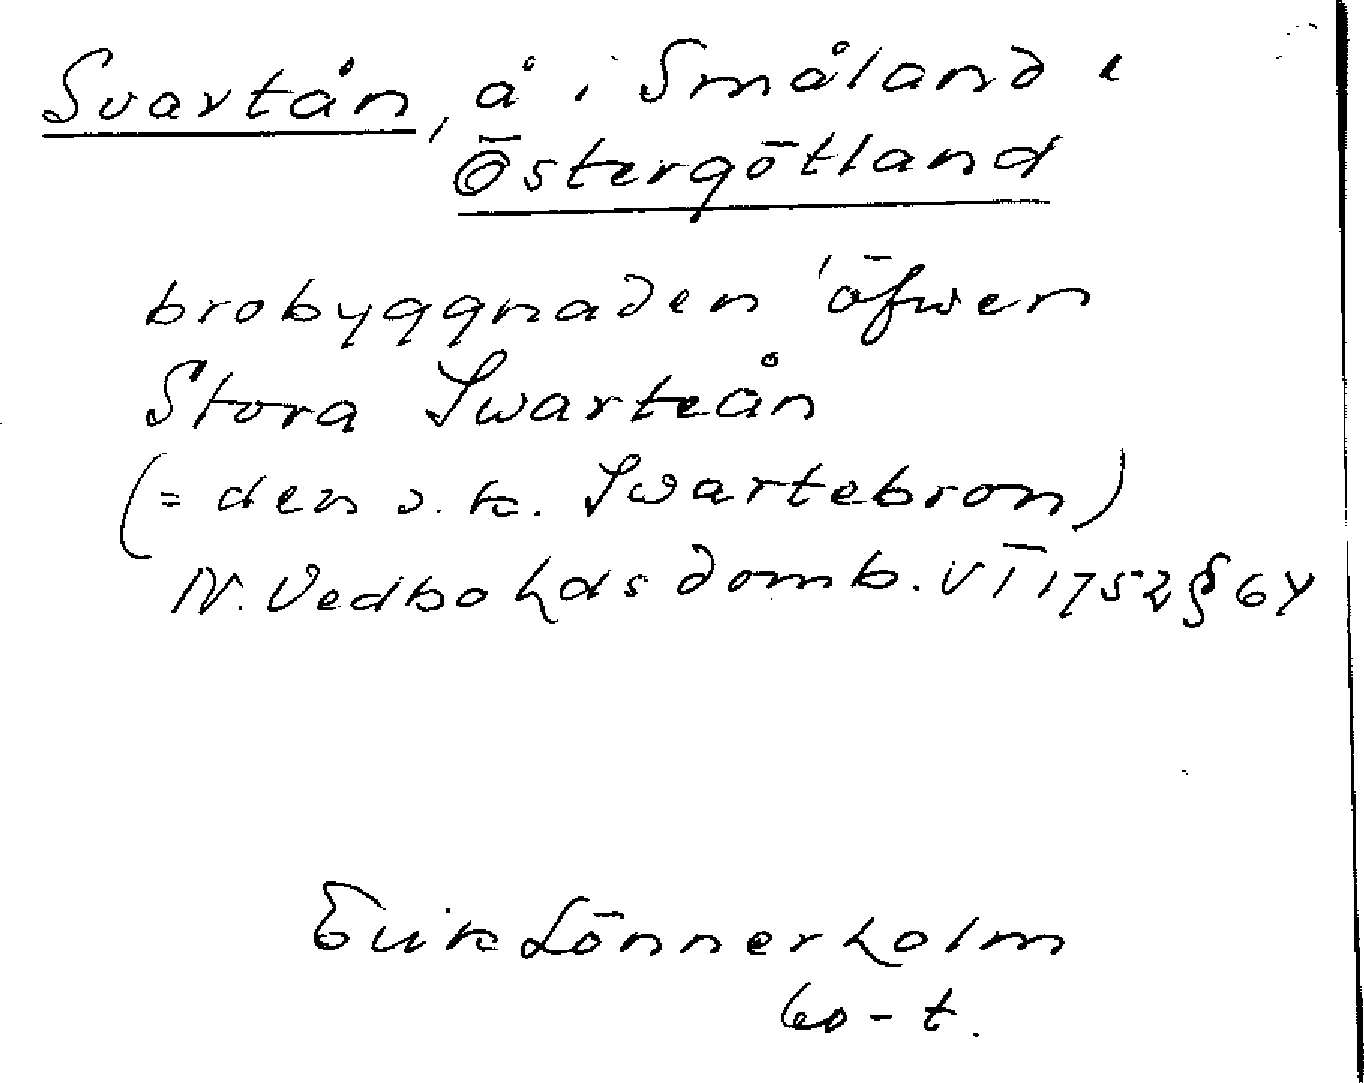 Svartån, å i Småland i
Östergötland
brobyggnaden 'öfwer
Stora Swarteån
(= den s.k. Swartebron)
N. Vedbo hds domb. VT 1752 § 64
Erik Lönnerholm
60-t.